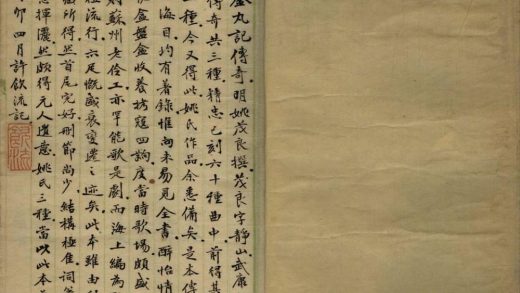 金丸記傳奇明姚茂良撰茂良字靜山武康
傳奇共三種精忠已刻六十種曲中前得其
一種今又得此姚氏作品余悉備矣是本傳
海目均有著錄惟尚未易見全書醉怡情
盒盤盒收養拷寇四齣度當時歌場頗盛
則蘇州老伶工亦罕能歌是劇而海上編為
流行亦足慨盛衰變遷之迹矣此本雖由
所得然首尾完好刪節尚少結構極佳詞
恣揮灑然頗得元人遺意姚氏三種當以此本
卯四月許飲流記